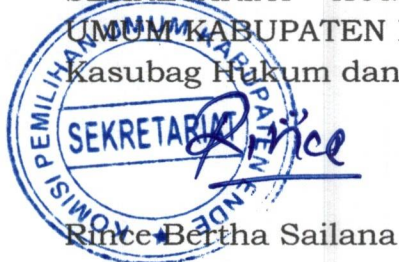 UMUM KABUPATEN
Kasubag Hukum dan
KOMISI PEMILIHAN UMUM KABUPATEN ENDE
SEKRETARIAT
Rince
Rince Bertha Sailana